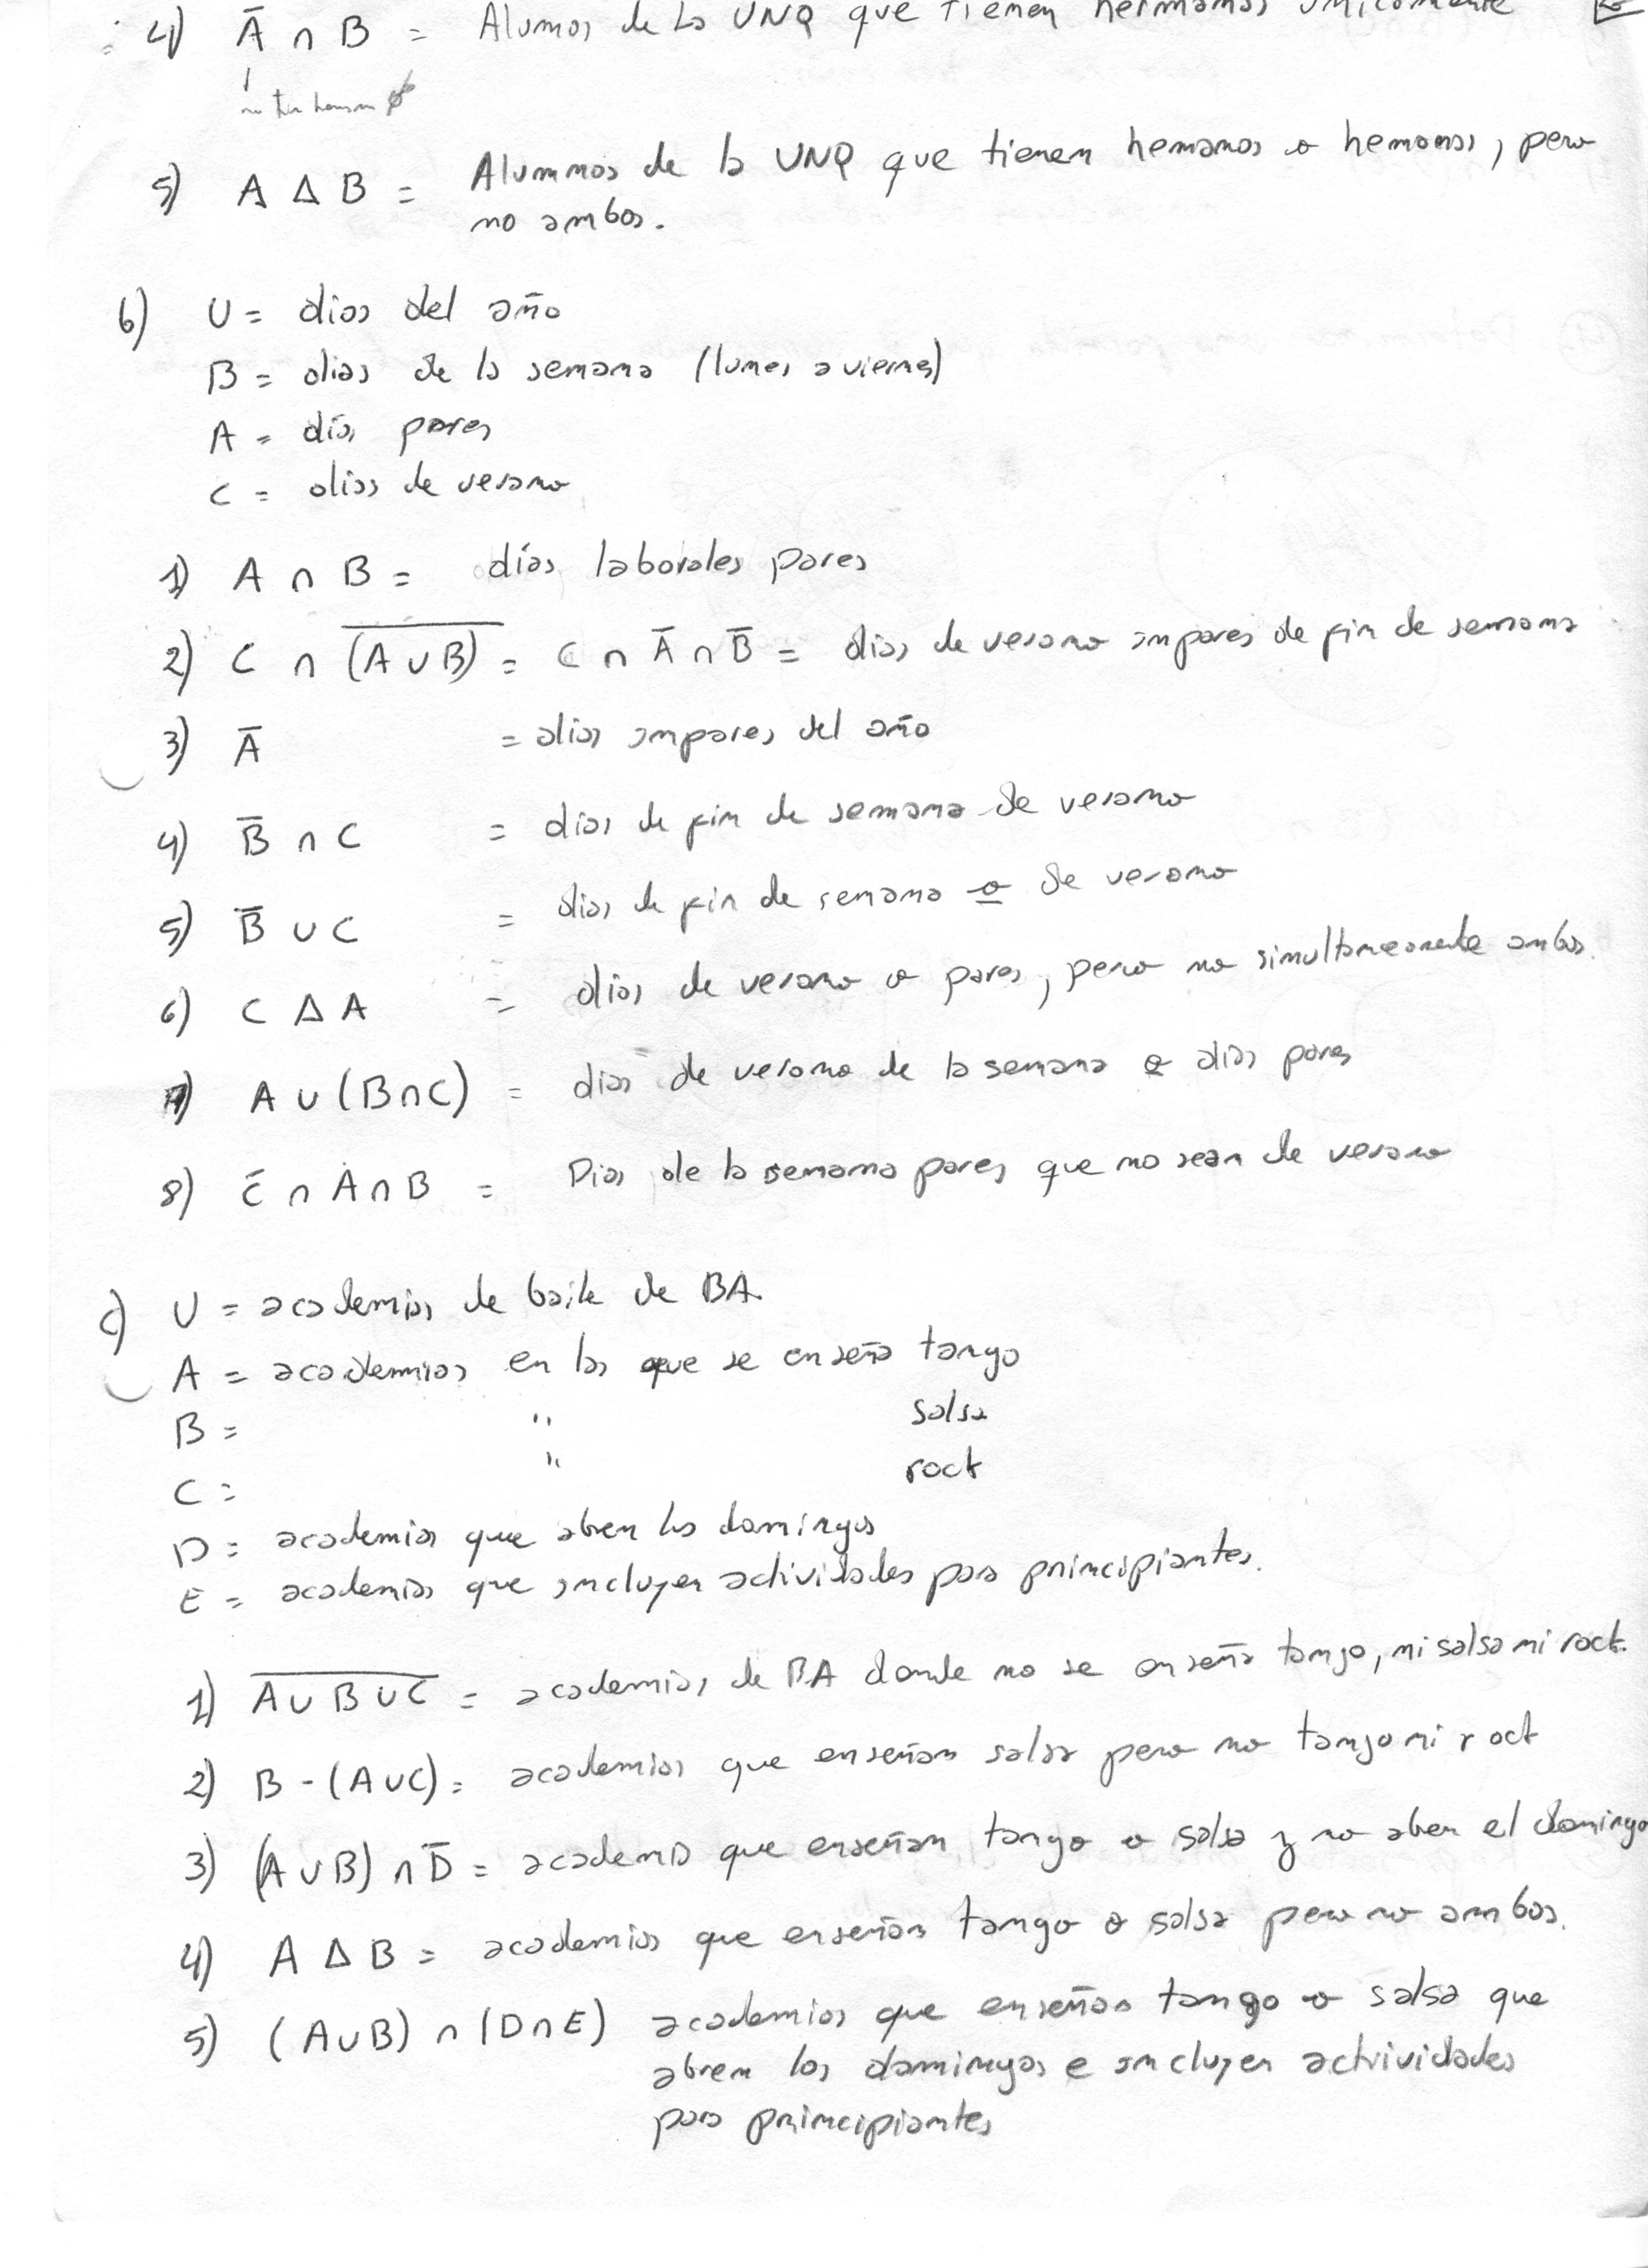 4) Ā ∩ B = Alumnos de la UNQ que tienen hermanas unicamente
5) A Δ B = Alumnos de la UNQ que tienen hemanos o hemanas, pero
no ambos.
b) U = dias del año
B = dias de la semana (lunes a viernes)
A = días pares
C = dias de verano
1) A ∩ B = días laborales pares
2) C ∩ \overline{(A ∪ B)} = C ∩ Ā ∩ B̄ = dias de verano impares de fin de semana
3) Ā = dias impares del año
4) B̄ ∩ C = dias de fin de semana de verano
5) B̄ ∪ C = dias de fin de semana o de verano
6) C Δ A = dias de verano o pares, pero no simultaneamente ambos.
7) A ∪ (B ∩ C) = dias de verano de la semana o dias pares
8) C̄ ∩ A ∩ B = Dias de la semana pares que no sean de verano
c) U = academias de baile de BA.
A = academias en las que se enseña tango
B = " salsa
C = " rock
D = academias que abren los domingos
E = academias que incluyen actividades para principiantes.
1) \overline{A ∪ B ∪ C} = academias de BA donde no se enseña tango, ni salsa ni rock.
2) B - (A ∪ C) = academias que enseñan salsa pero no tango ni rock
3) (A ∪ B) ∩ D̄ = academias que enseñan tango o salsa y no abren el domingo
4) A Δ B = academias que enseñan tango o salsa pero no ambos.
5) (A ∪ B) ∩ (D ∩ E) academias que enseñan tango o salsa que
abren los domingos e incluyen actividades
para principiantes